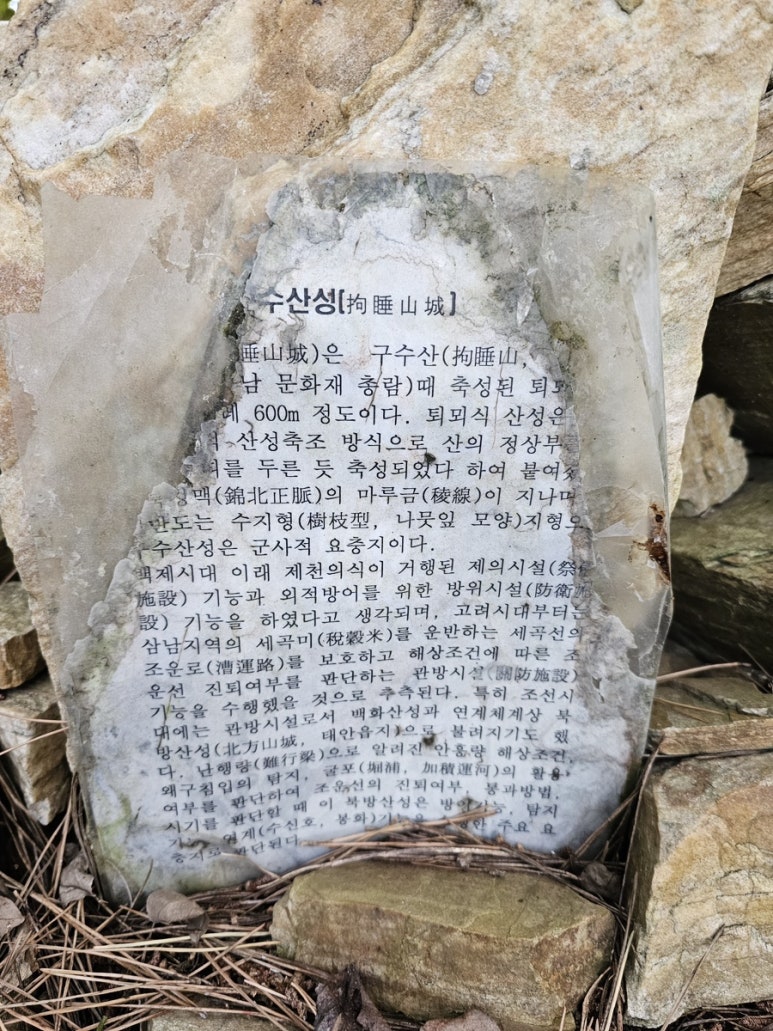 수산성[拘睡山城]
睡山城)은 구수산(拘睡山,
남 문화재 총람)때 축성된
600m 정도이다. 퇴뫼식 산성은
산성축조 방식으로 산의 정상부
를 두른 듯 축성되었다 하여 붙여
맥(錦北正脈)의 마루금(稜線)이 지나며
반도는 수지형(樹枝型, 나뭇잎 모양)지형
수산성은 군사적 요충지이다.
백제시대 이래 제천의식이 거행된 제의시설(祭
施設) 기능과 외적방어를 위한 방위시설(防衛
設) 기능을 하였다고 생각되며, 고려시대부터는
삼남지역의 세곡미(稅穀米)를 운반하는 세곡선의
조운로(漕運路)를 보호하고 해상조건에 따른 조
운선 진퇴여부를 판단하는 관방시설(關防施設)
기능을 수행했을 것으로 추측된다. 특히 조선시
대에는 관방시설로서 백화산성과 연계체계상 북
방산성(北方山城, 태안읍지)으로 불려지기도 했
다. 난행량(難行梁)으로 알려진 안흥량 해상조건,
왜구침입의 탐지, 굴포(堀浦, 加積運河)의 활용
여부를 판단하여 조운선의 진퇴여부, 통과방법,
시기를 판단할 때 이 북방산성은 방어기능, 탐지
연계(수신호, 봉화)기능을 주요 요
충지로 판단된다